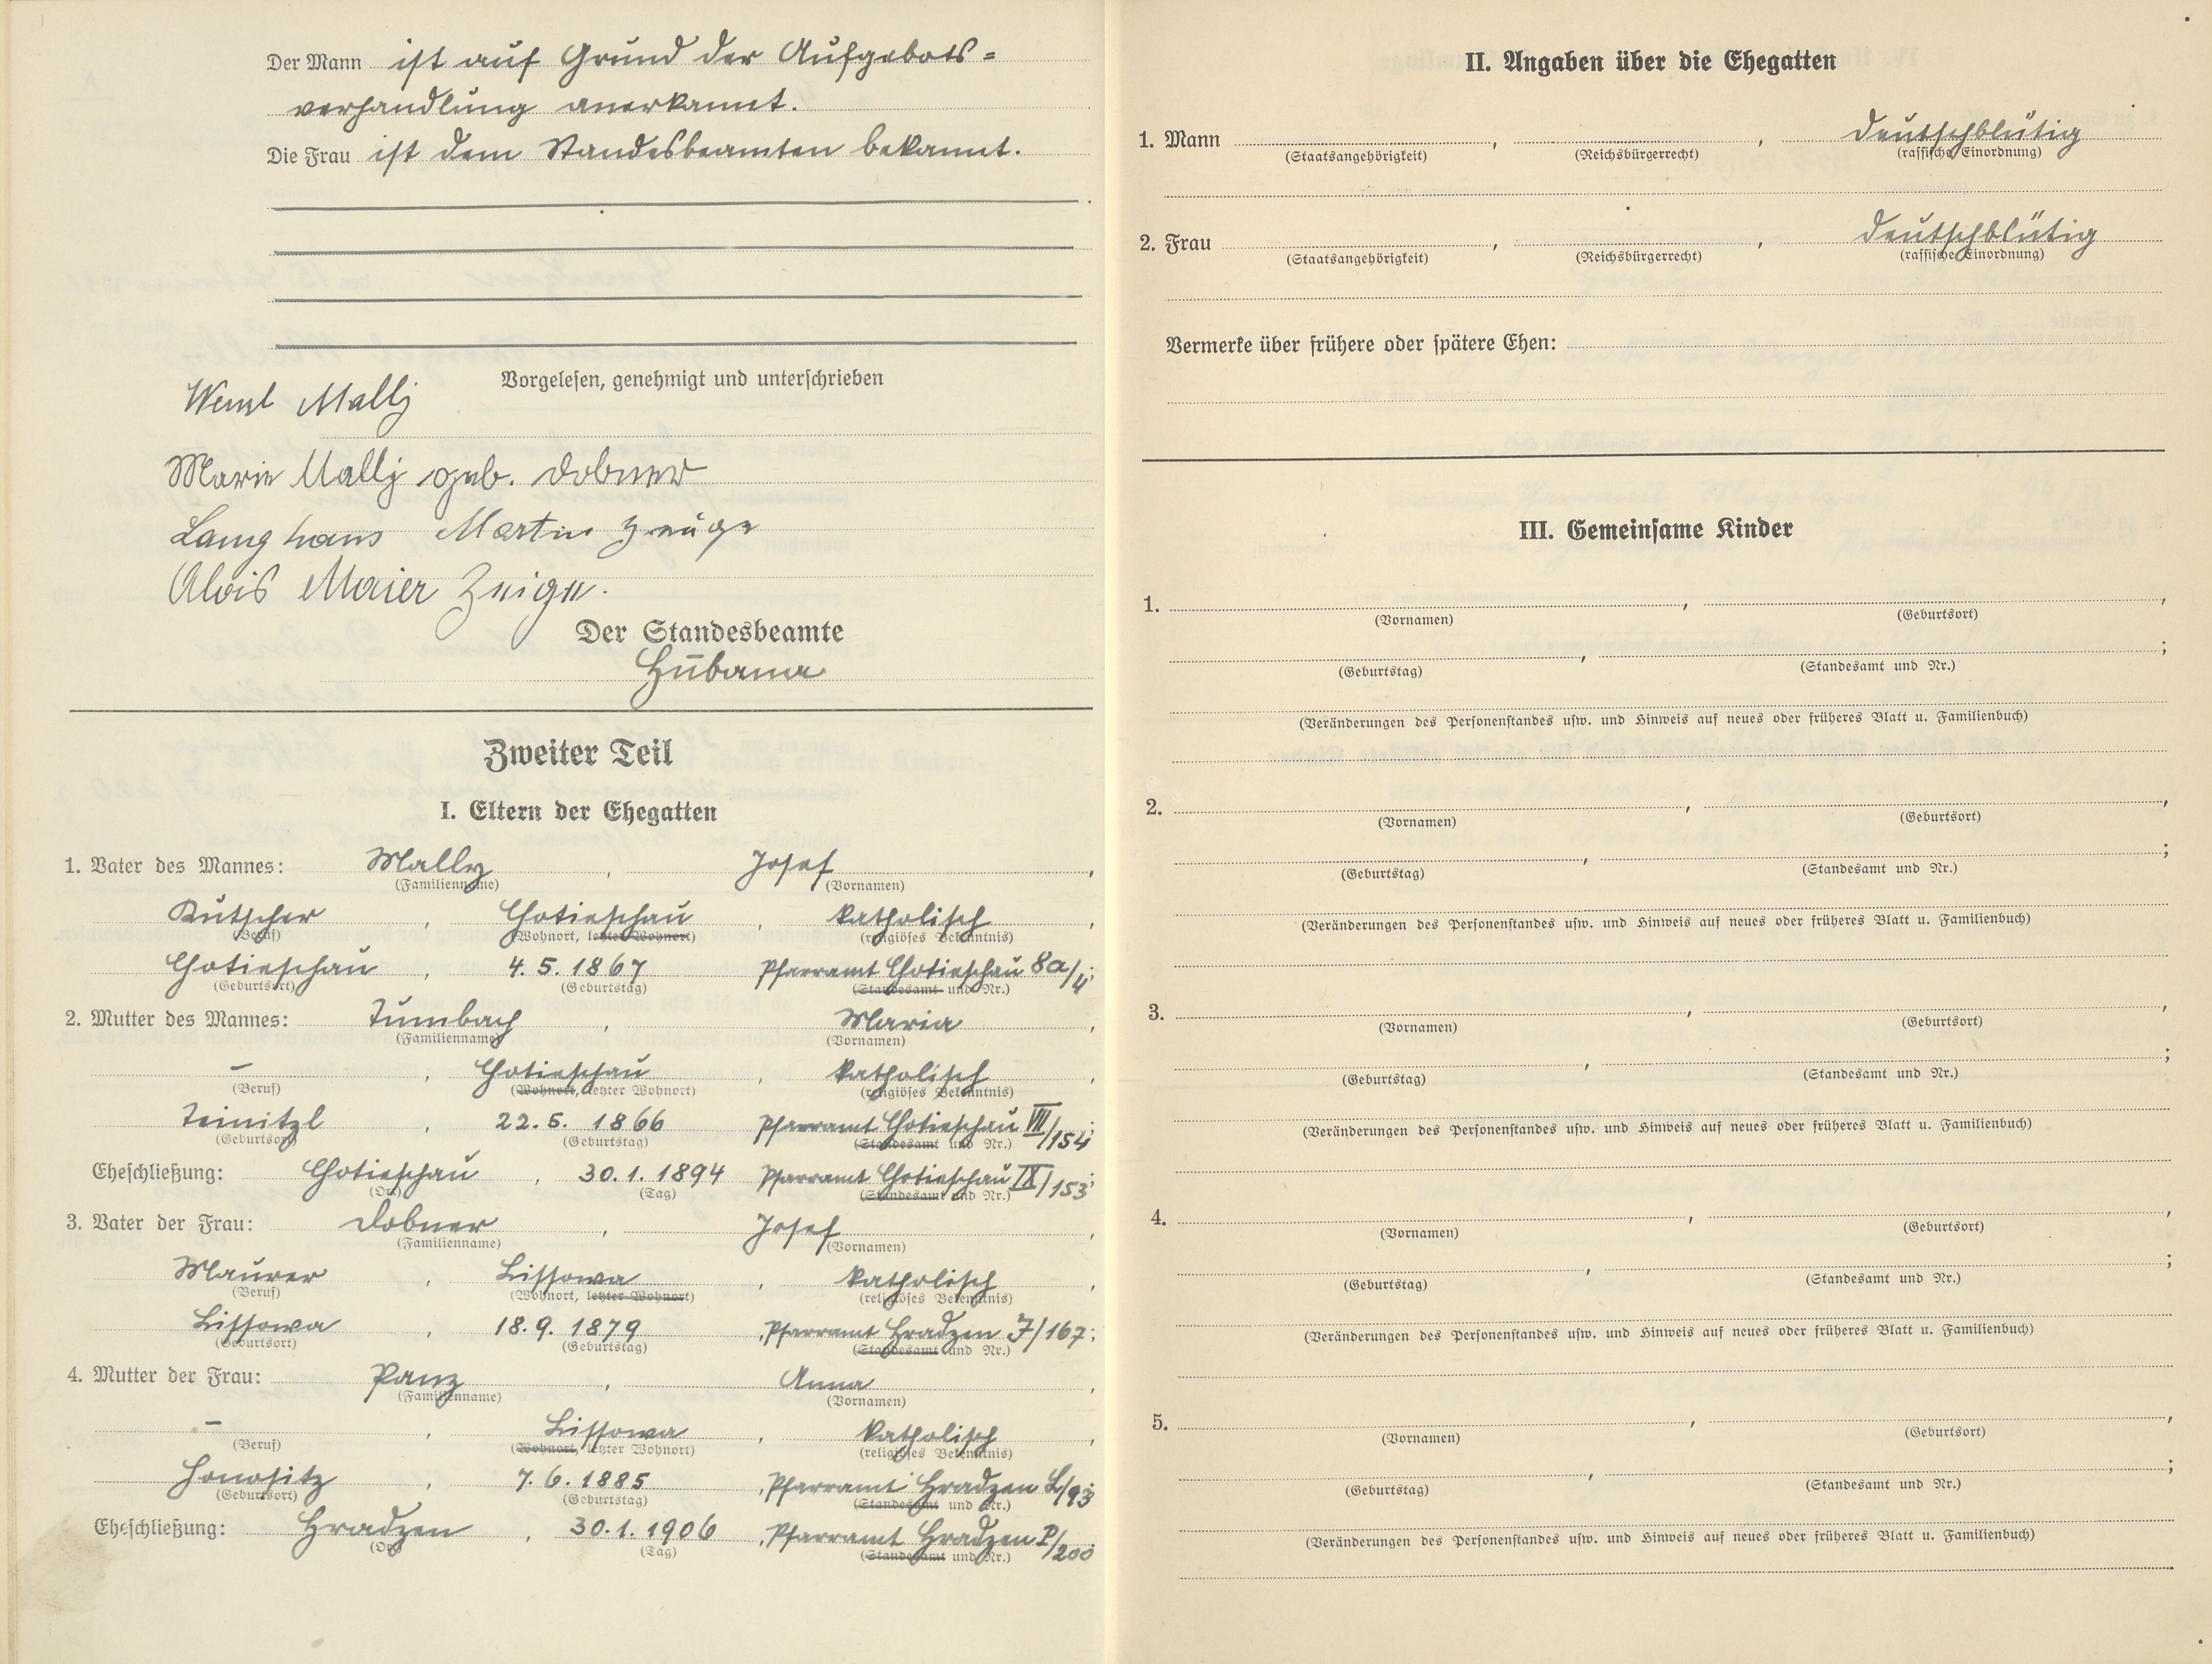 Der Mann ist auf Grund der Aufgebots=
verhandlung anerkannt.
Die Frau ist dem Standesbeamten bekannt.
Vorgelesen, genehmigt und unterschrieben
Wenzl Mally
Marie Mally geb. Dobner
Langhans Martin Zeuge
Alois Maier Zeuge.
Der Standesbeamte
Zweiter Teil
I. Eltern der Ehegatten
1. Vater des Mannes: Mally, Josef,
(Familienname) (Vornamen)
Kutscher, Chotieschau, katholisch,
(Beruf) (Wohnort, letzter Wohnort) (religiöses Bekenntnis)
Chotieschau, 4. 5. 1867 Pfarramt Chotieschau 8a/4;
(Geburtsort) (Geburtstag) (Standesamt und Nr.)
2. Mutter des Mannes: Tumbach, Maria,
(Familienname) (Vornamen)
–, Chotieschau, katholisch,
(Beruf) (Wohnort, letzter Wohnort) (religiöses Bekenntnis)
Teinitzl, 22. 5. 1866 Pfarramt Chotieschau VII/154;
(Geburtsort) (Geburtstag) (Standesamt und Nr.)
Eheschließung: Chotieschau, 30. 1. 1894 Pfarramt Chotieschau IX/153;
(Ort) (Tag) (Standesamt und Nr.)
3. Vater der Frau: Dobner, Josef,
(Familienname) (Vornamen)
Maurer, Lissowa, katholisch,
(Beruf) (Wohnort, letzter Wohnort) (religiöses Bekenntnis)
Lissowa, 18. 9. 1879, Pfarramt Hradzen J/167;
(Geburtsort) (Geburtstag) (Standesamt und Nr.)
4. Mutter der Frau: Panz, Anna,
(Familienname) (Vornamen)
–, Lissowa, katholisch,
(Beruf) (Wohnort, letzter Wohnort) (religiöses Bekenntnis)
Honositz, 7. 6. 1885, Pfarramt Hradzen L/93;
(Geburtsort) (Geburtstag) (Standesamt und Nr.)
Eheschließung: Hradzen, 30. 1. 1906, Pfarramt Hradzen P/200
(Ort) (Tag) (Standesamt und Nr.)
II. Angaben über die Ehegatten
1. Mann , , deutschblütig
(Staatsangehörigkeit) (Reichsbürgerrecht) (rassische Einordnung)
2. Frau , , deutschblütig
(Staatsangehörigkeit) (Reichsbürgerrecht) (rassische Einordnung)
Vermerke über frühere oder spätere Ehen:
III. Gemeinsame Kinder
1. , ,
(Vornamen) (Geburtsort)
, ;
(Geburtstag) (Standesamt und Nr.)
(Veränderungen des Personenstandes usw. und Hinweis auf neues oder früheres Blatt u. Familienbuch)
2. , ,
(Vornamen) (Geburtsort)
, ;
(Geburtstag) (Standesamt und Nr.)
(Veränderungen des Personenstandes usw. und Hinweis auf neues oder früheres Blatt u. Familienbuch)
3. , ,
(Vornamen) (Geburtsort)
, ;
(Geburtstag) (Standesamt und Nr.)
(Veränderungen des Personenstandes usw. und Hinweis auf neues oder früheres Blatt u. Familienbuch)
4. , ,
(Vornamen) (Geburtsort)
, ;
(Geburtstag) (Standesamt und Nr.)
(Veränderungen des Personenstandes usw. und Hinweis auf neues oder früheres Blatt u. Familienbuch)
5. , ,
(Vornamen) (Geburtsort)
, ;
(Geburtstag) (Standesamt und Nr.)
(Veränderungen des Personenstandes usw. und Hinweis auf neues oder früheres Blatt u. Familienbuch)